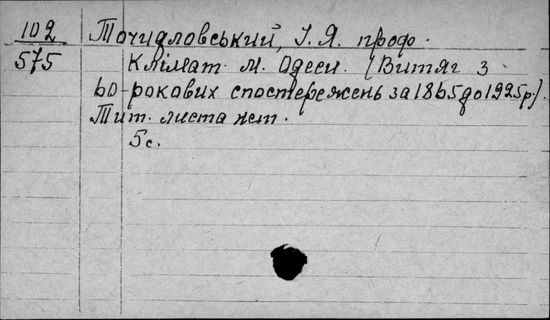 102 Точидловський, І. Я. проф.
575 Клімат м. Одеси. (Витяг з
60-рокових спостережень за 1865 до 1925 р.)
Тит. листа нет.
5 с.